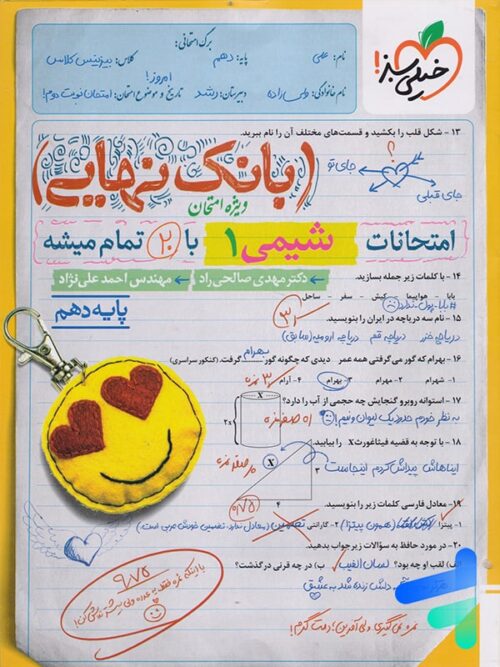 برگ امتحانی:
نام: علی
پایه: دهم
کلاس: بیزینس کلاس
نام خانوادگی: ولی زاده
دبیرستان: رشد
تاریخ و موضوع امتحان: امتحان نوبت دوم!
امروز!
خیلی سبز!
۱۳ - شکل قلب را بکشید و قسمت‌های مختلف آن را نام ببرید.
؟
جای تو
جای قبلی
(بانک نهایی)
ویژه امتحان
امتحانات شیمی ۱ با ۲۰ تمام میشه
دکتر مهدی صالحی‌راد
مهندس احمد علی‌نژاد
پایه دهم
۱۴ - با کلمات زیر جمله بسازید.
بابا - هواپیما - کیش - سفر - ساحل
#بابا_پول_نداره
۱۵ - نام سه دریاچه در ایران را بنویسید.
دریاچه خزر دریاچه قم دریاچه ارومیه (سابق)
۱۶ - بهرام که گور می‌گرفتی همه عمر دیدی که چگونه گور بهرام گرفت. (کنکور سراسری)
۱- شهرام ۲- مهرام ۳- بهرام ۴- آرام
۱۷ - استوانه روبرو گنجایش چه حجمی از آب را دارد؟
X
2x
به نظر خودم حدود یک لیوان و نیم!
۱۸ - با توجه به قضیه فیثاغورث X را بیابید.
ایناهاش پیداش کردم اینجاست
X
۳
۴
۱۹- معادل فارسی کلمات زیر را بنویسید.
۱- پیتزا (همون پیتزا) ۲- گارانتی تضمین (معادل ندارد، تضمین خودش عربی است.)
۲۰- در مورد حافظ به سؤالات زیر جواب بدهید.
الف) لقب او چه بود؟ لسان الغیب ب) در چه قرنی درگذشت؟
دلش زنده شد به عشق
۹/۷۵
نمره نمی‌گیری ولی آفرین! دمت گرم!